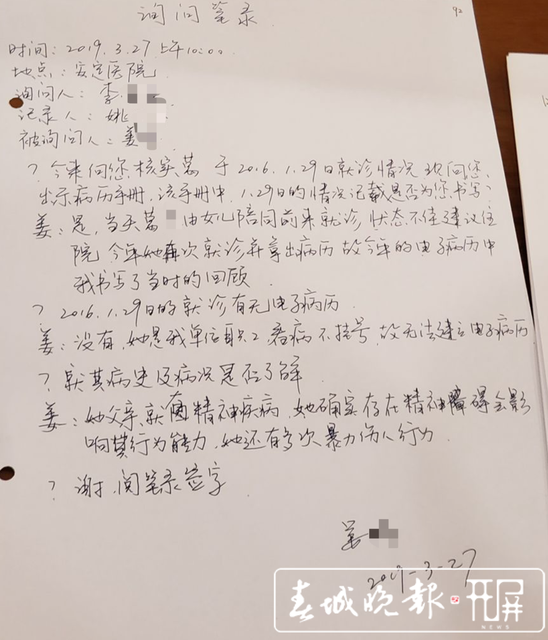 询问笔录
92
时间：2019.3.27上午10:00
地点：安定医院
询问人：李
记录人：姚
被询问人：姜
？今来向您核实葛 于2016.1.29日就诊情况 现向您
出示病历手册，该手册中，1.29日的情况记载是否为您书写？
姜：是，当天葛 由女儿陪同前来就诊 状态不佳 建议住
院 今年她再次就诊并拿出病历 故今年的电子病历中
我书写了当时的回顾
？2016.1.29日的就诊有无电子病历
姜：没有，她是我单位职工 看病不挂号，故无法建立电子病历
？就其病史及病况是否了解
姜：她父亲就有精神疾病，她确实存在精神障碍会影
响其行为能力，她还有多次暴力伤人行为
？谢，阅笔录签字
姜
2019-3-27
春城晚报 开屏
NEWS